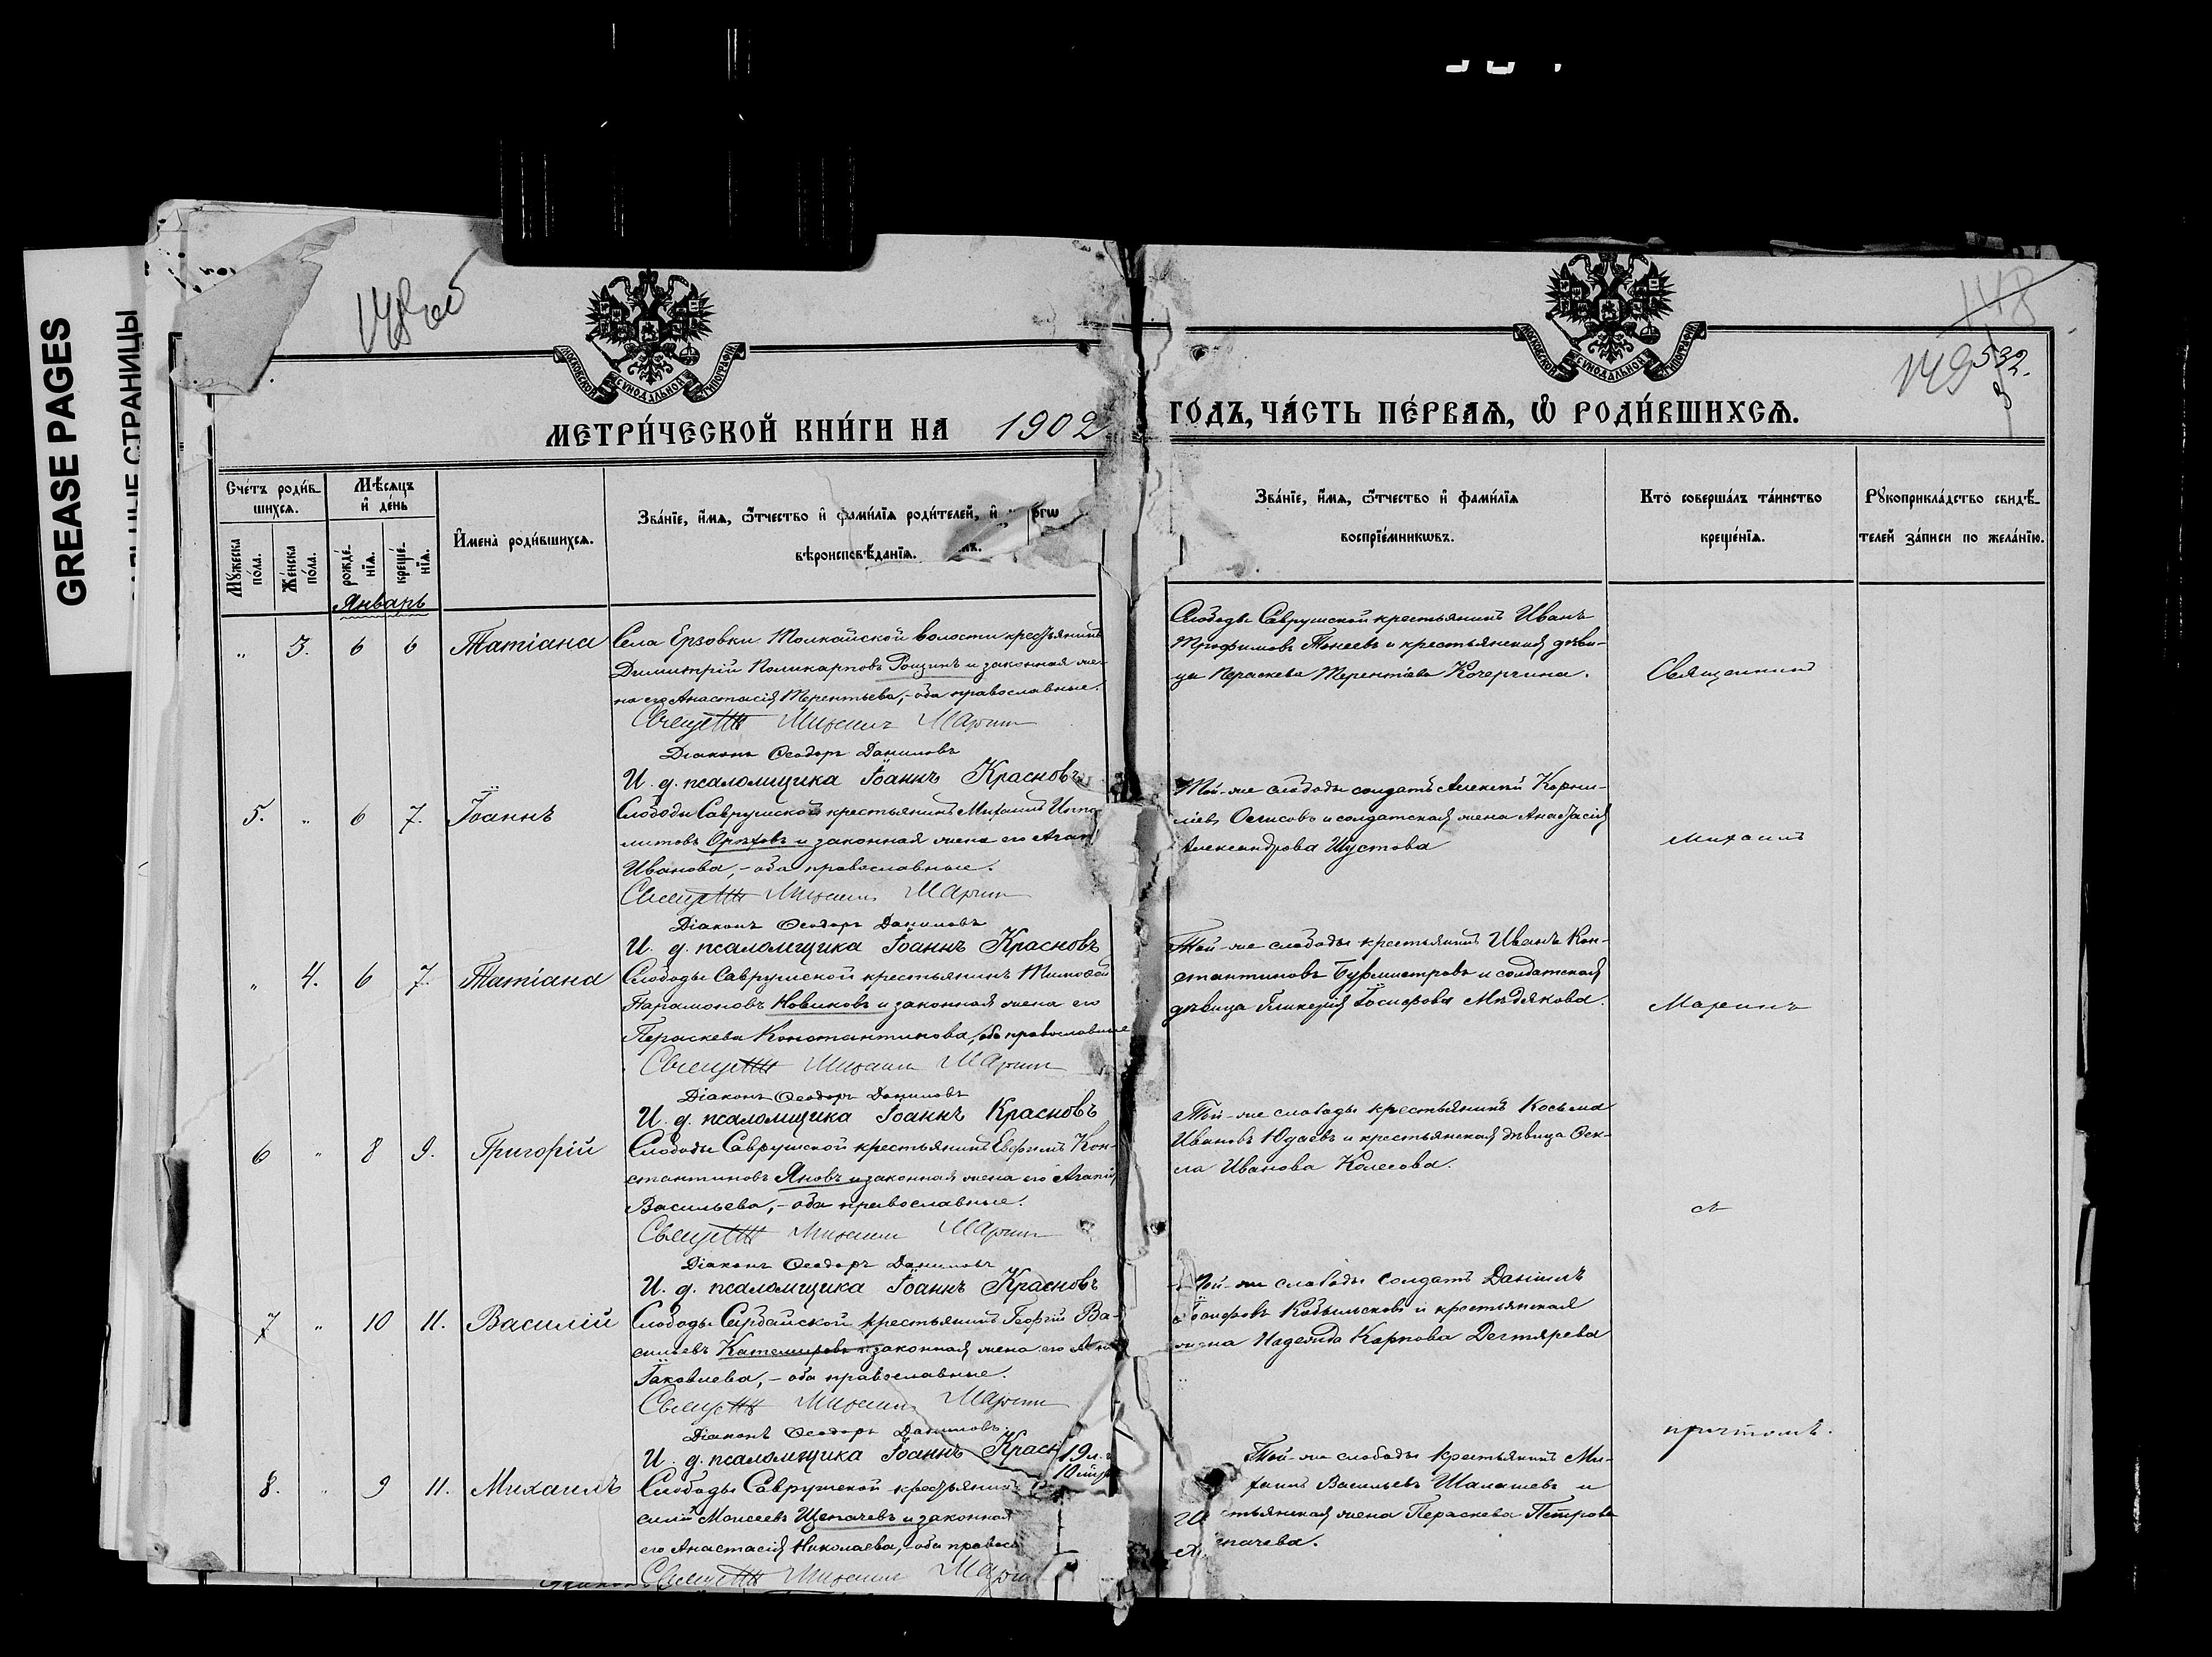 GREASE PAGES
СТРАНИЦЫ
148 об
148
149
532.
МОСКОВСКОЙ СѴНОДАЛЬНОЙ ТИПОГРАФІИ
МОСКОВСКОЙ СѴНОДАЛЬНОЙ ТИПОГРАФІИ
МЕТРИ́ЧЕСКОЙ КНИ́ГИ НА 1902 ГОДЪ, ЧА́СТЬ ПЕ́РВАЯ, Ѡ РОДИ́ВШИХСЯ.
Сче́тъ роди́в-
шихся.
Му́жеска по́ла.
Же́нска по́ла.
Мѣ́сяцъ
и де́нь
рожде́-
нїя.
креще́-
нїя.
Январь
Имена̀ роди́вшихся.
Зва́нїе, и́мя, ѻ́тчество и фами́лїя роди́телей, и
вѣроисповѣ́данїя.
Зва́нїе, и́мя, ѻ́тчество и фами́лїя
воспрїе́мникѡвъ.
Кто̀ соверша́лъ та́инство
креще́нїя.
Рꙋкоприкла́дство свидѣ́-
телей за́писи по жела́нїю.
„ 3. 6 6 Татіана
Села Ерзовки Толкайской волости крестьянинъ
Димитрій Поликарповъ Рощинъ и законная же-
на его Анастасія Терентьева, – оба православные.
Священ Михаил Марин
Діаконъ Ѳеодоръ Даниловъ
И. д. псаломщика Іоаннъ Красновъ
Слободы Саврушской крестьянинъ Иванъ
Трофимовъ Токеевъ и крестьянская дѣви-
ца Параскева Терентіева Кочергина.
Священникъ
5. „ 6 7. Іоаннъ
Слободы Саврушской крестьянинъ Михаилъ Иппо
литовъ Орѣховъ и законная жена его Агап
Иванова, – оба православные.
Священ Михаил Марин
Діаконъ Ѳеодоръ Даниловъ
И. д. псаломщика Іоаннъ Красновъ
Той-же слободы солдатъ Алексѣй Корни-
ліевъ и солдатская жена Анастасія
Александрова Шустова
Михаилъ
„ 4. 6 7. Татіана
Слободы Саврушской крестьянинъ Тимофей
Парамоновъ Новиковъ и законная жена его
Параскева Константинова, оба православные
Священ Михаил Марин
Діаконъ Ѳеодоръ Даниловъ
И. д. псаломщика Іоаннъ Красновъ
Той-же слободы крестьянинъ Иванъ Кон-
стантиновъ Бурмистровъ и солдатская
дѣвица Гликерія Іосифова Мѣдякова.
Маринъ
6 „ 8 9. Григорій
Слободы Саврушской крестьянинъ Евфимъ Кон-
стантиновъ Яновъ и законная жена его Агапія
Васильева, – оба православные.
Священ Михаил Марин
Діаконъ Ѳеодоръ Даниловъ
И. д. псаломщика Іоаннъ Красновъ
Той-же слободы крестьянинъ Косьма
Ивановъ Юдаевъ и крестьянская дѣвица Ѳек-
ла Иванова Колесова.
съ
7 „ 10 11. Василій
Слободы Сарбайской крестьянинъ Георгій Ва-
сильевъ Катемировъ и законная жена его
Іаковлева, – оба православные.
Священ Михаил Марин
Діаконъ Ѳеодоръ Даниловъ
И. д. псаломщика Іоаннъ Красн
Той-же слободы солдатъ Даніилъ
Іосифовъ Кобыльсковъ и крестьянская
жена Надежда Карпова Дегтярева
причтомъ.
8. „ 9 11. Михаилъ
Слободы Саврушской крестьянинъ
силій Моисеевъ Щепачевъ и законная
его Анастасія Николаева, оба правосл
Священ Михаил Мари
Той-же слободы крестьянинъ Ми-
хаилъ Васильевъ Шалашевъ и
стьянская жена Параскева Петрова
пачева.